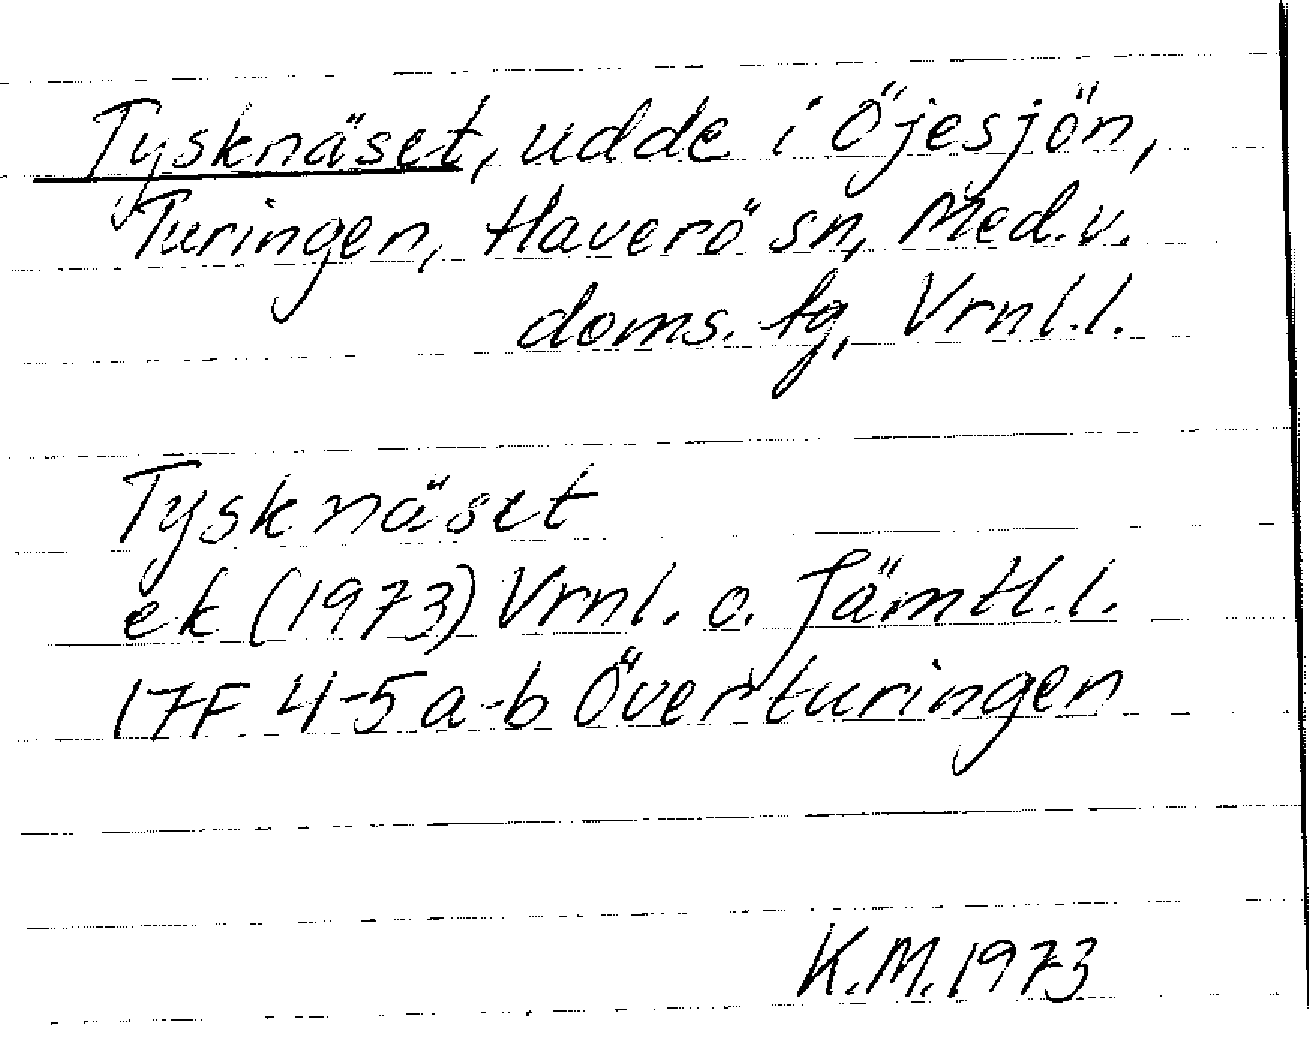 Tysknäset, udde i Öjesjön,
Turingen, Haverö sn, Med.v.
doms. tg, Vrnl.l.
Tysknäset
ek (1973) Vrnl. o. Jämtl.l.
17F 4-5 a-b Överturingen
K.M. 1973